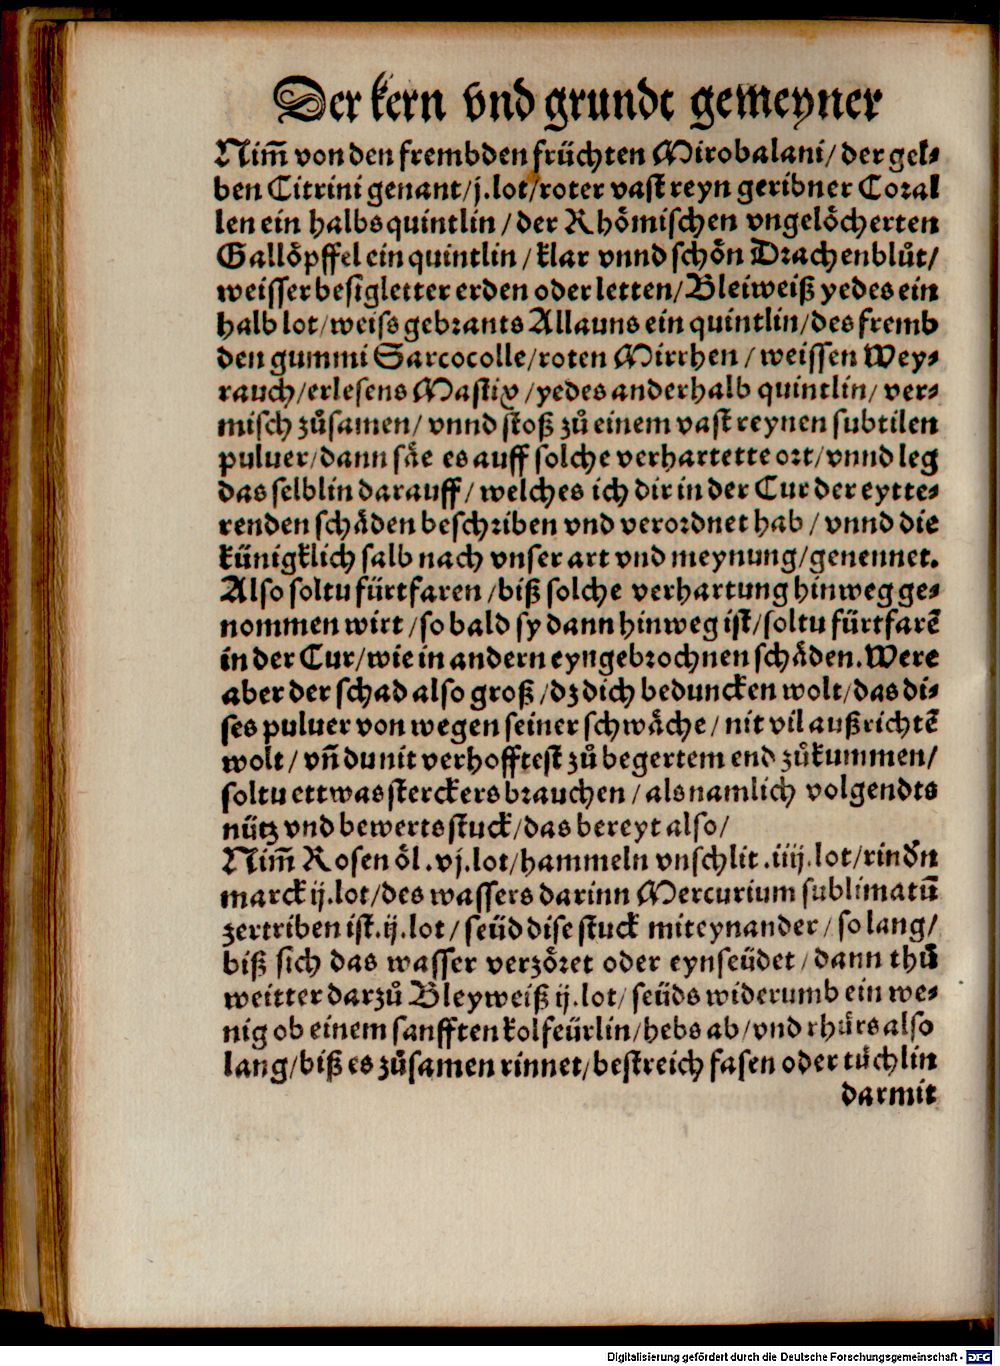 Der kern vnd grundt gemeyner
Nim̄ von den frembden früchten Mirobalani/ der gel⸗
ben Citrini genant/ j. lot/ roter vast reyn geribner Coral
len ein halbs quintlin / der Rhömischen vngelöcherten
Gallöpffel ein quintlin / klar vnnd schön Drachenblůt/
weisser besigletter erden oder letten/ Bleiweiß yedes ein
halb lot/ weiss gebrants Allauns ein quintlin/ des fremb
den gummi Sarcocolle/ roten Mirrhen / weissen Wey⸗
rauch/ erlesens Mastix / yedes anderhalb quintlin/ ver⸗
misch zůsamen/ vnnd stoß zů einem vast reynen subtilen
puluer/ dann säe es auff solche verhartette ort/ vnnd leg
das selblin darauff/ welches ich dir in der Cur der eytte⸗
renden schäden beschriben vnd verordnet hab / vnnd die
künigklich salb nach vnser art vnd meynung/ genennet.
Also soltu fürtfaren / biß solche verhartung hinweg ge⸗
nommen wirt / so bald sy dann hinweg ist/ soltu fürtfarē
in der Cur/ wie in andern eyngebrochnen schäden. Were
aber der schad also groß / dz dich beduncken wolt/ das di⸗
ses puluer von wegen seiner schwäche / nit vil außrichtē
wolt / vn̄ du nit verhofftest zů begertem end zůkummen/
soltu ettwas sterckers brauchen / als namlich volgendts
nütz vnd bewerts stuck/ das bereyt also/
Nim̄ Rosen öl .vj. lot/ hammeln vnschlit .iiij. lot/ rindn
marck ij. lot/ des wassers darinn Mercurium sublimatū
zertriben ist .ij. lot / seüd dise stuck miteynander / so lang/
biß sich das wasser verzöret oder eynseüdet / dann thů
weitter darzů Bleyweiß ij. lot/ seüds widerumb ein we⸗
nig ob einem sanfften kolfeürlin/ hebs ab/ vnd rhůrs also
lang/ biß es zůsamen rinnet/ bestreich fasen oder tůchlin
darmit
Digitalisierung gefördert durch die Deutsche Forschungsgemeinschaft - DFG